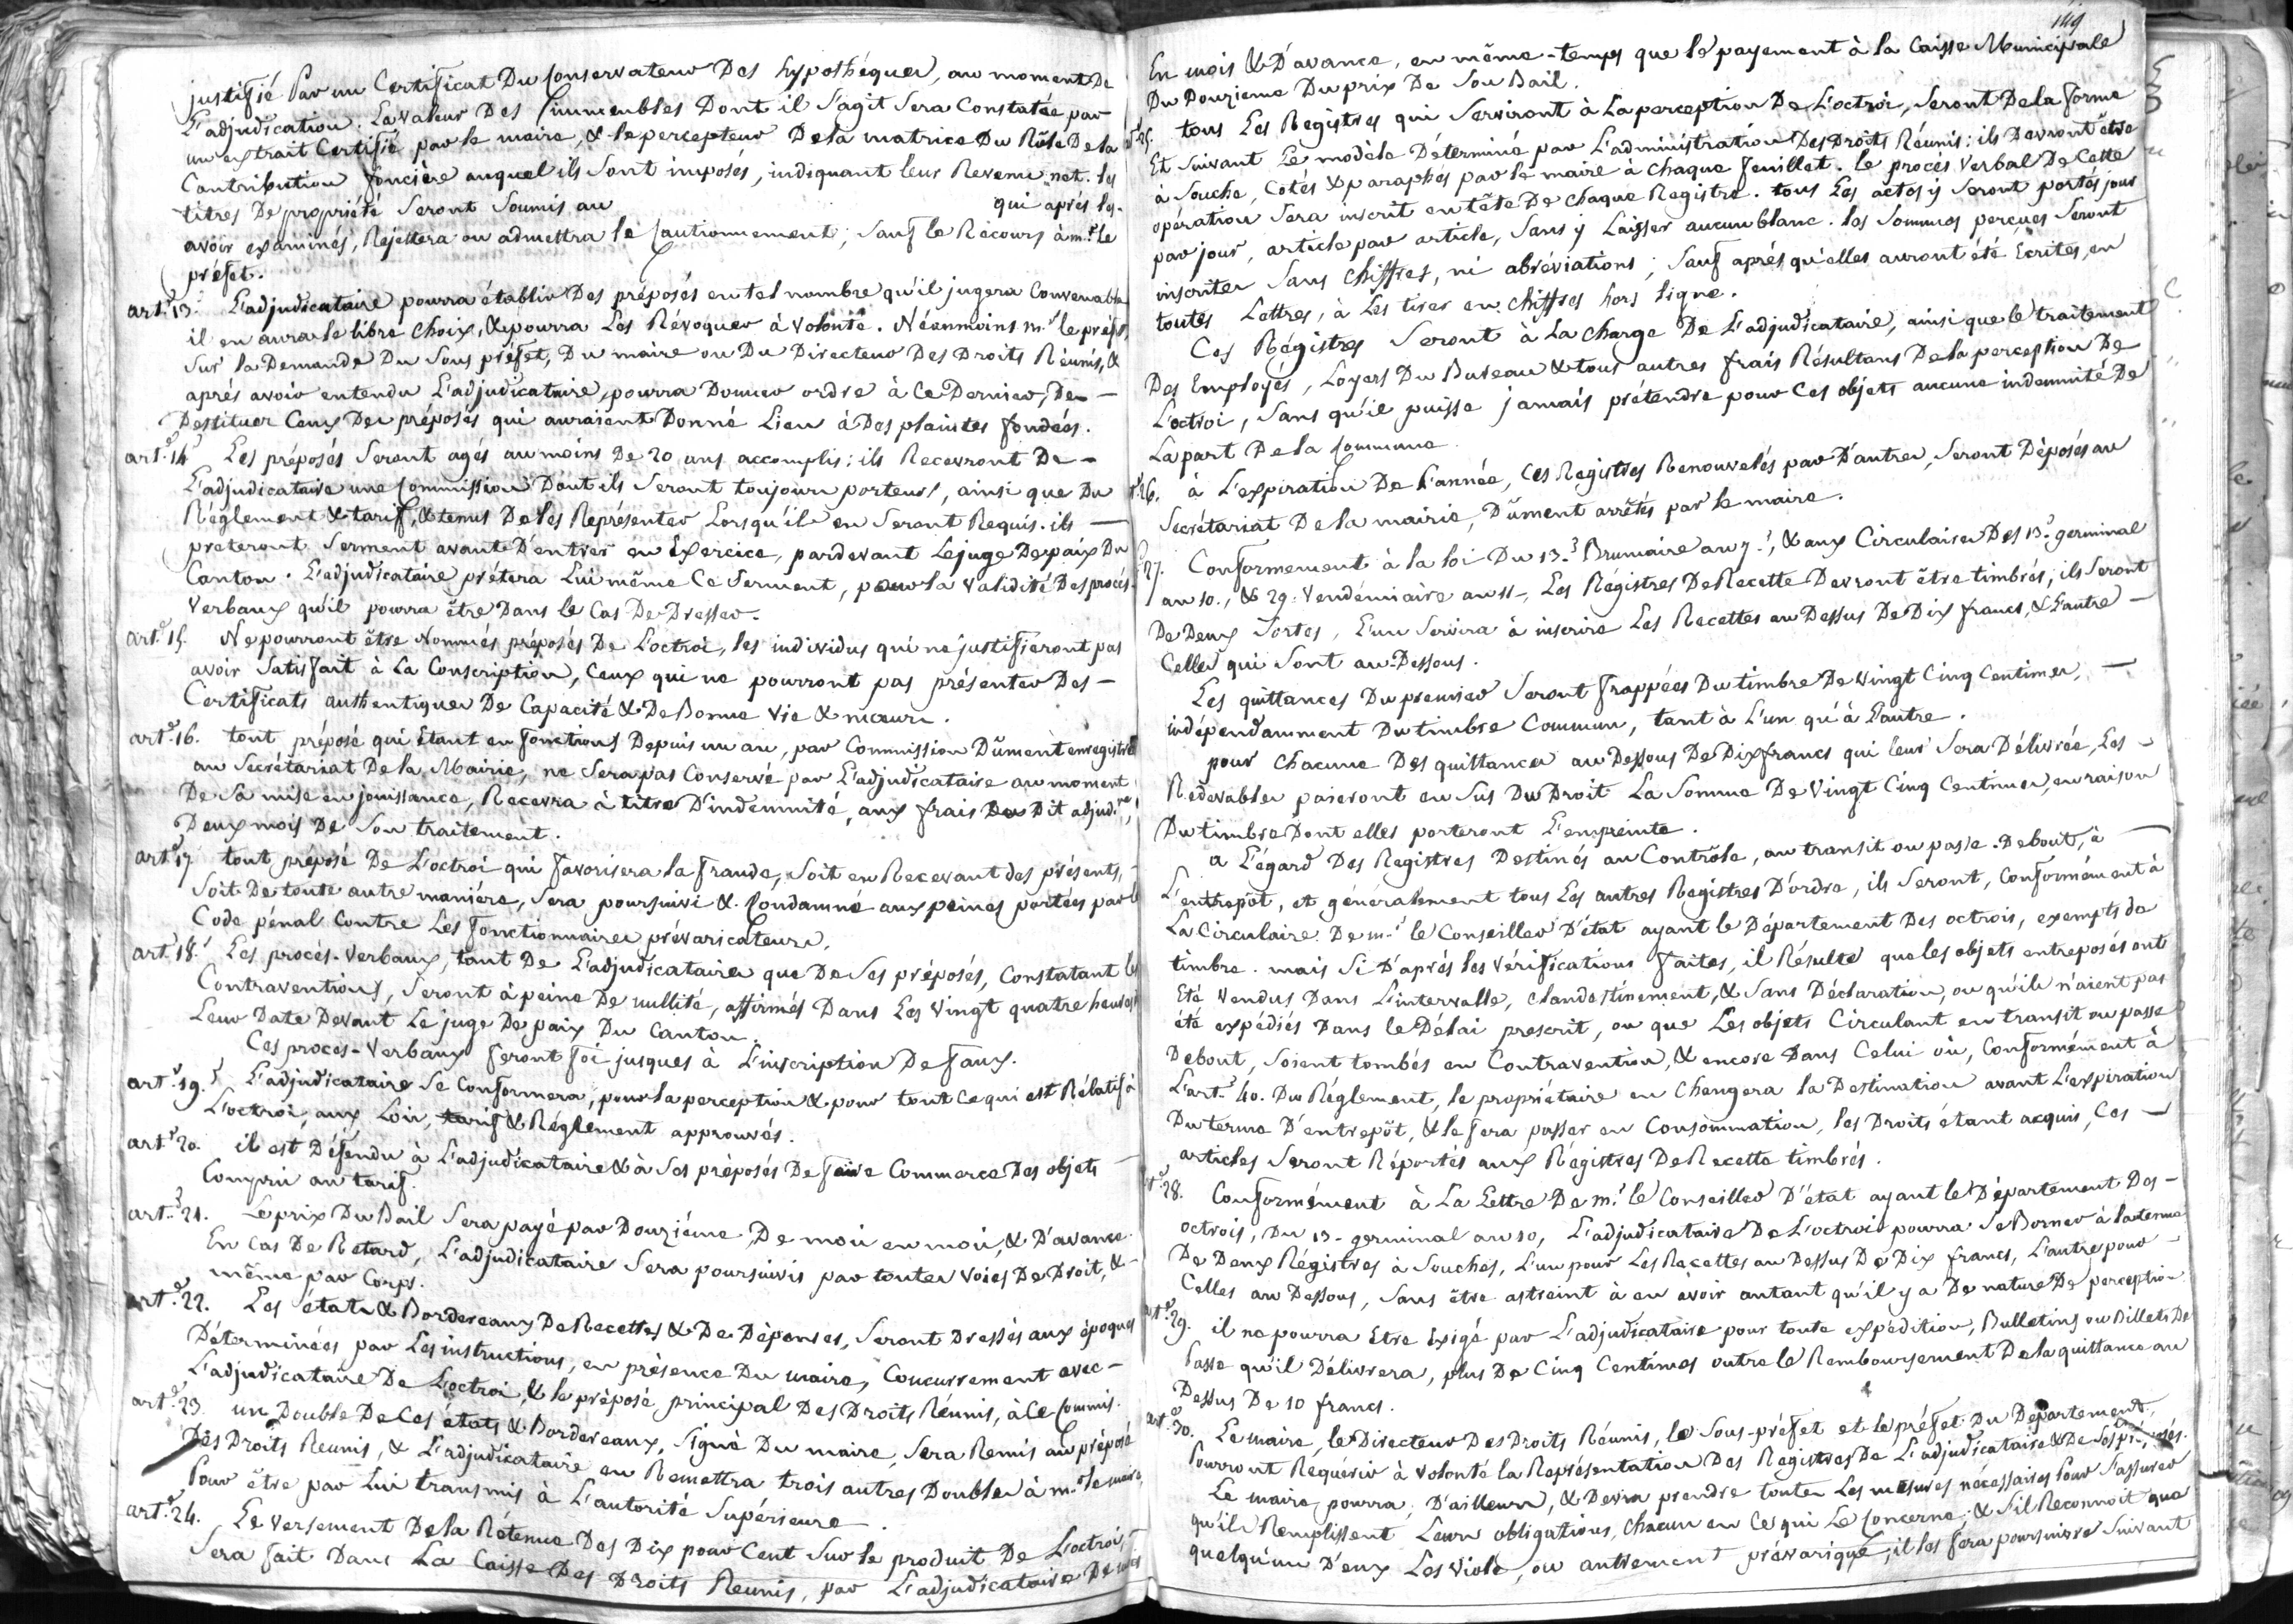 justifié Par un Certificat Du Conservateur Des hypothéques, au moment De
L'adjudication. La valeur Des immeubles Dont il S'agit Sera Constatée par
un extrait Certifié par le maire, & le percepteur De la matrice Du Rôle De la
Contribution foncière auquel ils Sont imposés, indiquant leur Revenu net. les
titres De propriété Seront Soumis au qui aprés les
avoir examinés, Rejettera ou admettra le Cautionnement; Sauf le Récours à m.r le
préfet.
art.e 13. L'adjudicataire pourra établir Des préposés en tel nombre qu'il jugera Convenable
il en aura le libre Choix, & pourra Les Révoquer à volonté. Néanmoins m.r le préfet,
Sur la Demande Du Sous préfet, Du maire ou Du Directeur Des Droits Réunis, &
aprés avoir entendu L'adjudicataire, pourra Donner ordre à Ce Dernier, De —
Destituer Ceux Des préposés qui auraient Donné Lieu à Des plaintes fondées.
art.e 14 Les préposés Seront agés au moins De 20 ans accomplis: ils Recevront De —
L'adjudicataire une Commission Dont ils Seront toujours porteurs, ainsi que Du
Réglement & tarif, & tenus De les Représenter Lorsqu'ils en Seront Requis. ils —
preteront Serment avant D'entrer en Exercice, pardevant Le juge De paix Du
Canton. L'adjudicataire prétera Lui même Ce Serment, pour la validité Des procés-
Verbaux qu'il pourra être Dans le Cas De Dresser.
art.e 15. Ne pourront être Nommés préposés De L'octroi, les individus qui ne justifieront pas
avoir Satisfait à La Conscription, Ceux qui ne pourront pas présenter Des —
Certificats authentiques De Capacité & De Bonne Vie & mœurs.
art.e 16. tout préposé qui étant en fonctions Depuis un an, par Commission Dûment enregistrée
au Secrétariat De la Mairie, ne Sera pas Conservé par L'adjudicataire au moment
De Sa mise en jouissance, Recevra à titre D'indemnité, aux frais Du Dit adjud.re,
Deux mois De Son traitement.
art.e 17 tout préposé De L'octroi qui favorisera la fraude, Soit en Recevant des présents,
Soit De toute autre maniére, Sera poursuivi & Condamné aux peines portées par le
Code pénal Contre Les fonctionnaires prévaricateurs.
art.e 18. Les procés-Verbaux, tant De L'adjudicataire que De Ses préposés, Constatant les
Contraventions, Seront à peine De nullité, affirmés Dans Les Vingt quatre heures
Leur Date Devant Le juge De paix Du Canton.
Ces proces-Verbaux feront foi jusques à L'inscription De faux.
art.e 19. L'adjudicataire Se Conformera, pour la perception & pour tout Ce qui est Rélatif à
L'octroi, aux Loix, tarif & Réglement approuvés.
art.e 20. il est Défendu à L'adjudicataire & à Ses préposés De faire Commerce Des objets
Compris au tarif.
art.e 21. Le prix Du Bail Sera payé par Douziéme, De mois en mois, & D'avance.
En Cas De Retard, L'adjudicataire Sera poursuivis par toutes Voies De Droit, &
même par Corps.
art.e 22. Les états & Bordereaux De Recettes & De Dépenses, Seront Dressés aux époques
Déterminées par Les instructions, en présence Du maire, Concurrement avec —
L'adjudicataire De L'octroi, & le préposé principal Des Droits Réunis, à Ce Commis.
art.e 23. un Double De Ces états & Bordereaux, Signé Du maire, Sera Remis au préposé
Des Droits Reunis, & L'adjudicataire en Remettra trois autres Doubles à m.r le maire,
Pour être par Lui transmis à L'autorité Supérieure.
art.e 24. Le versement De la Rétenue Des Dix pour Cent Sur le produit De L'octroi,
Sera fait Dans La Caisse Des Droits Reunis, par L'adjudicataire De mois
149
En mois & D'avance, en même-temps que le payement à la Caisse Municipale
Du Douzieme Du prix De Son Bail.
25. tous Les Registres qui Serviront à La perception De L'octroi, Seront De la forme
Et Suivant Le modèle Déterminé par L'administration Des Droits Réunis: ils Devront être
à Souche, Cotés & paraphés par le maire à Chaque feuillet. le procés Verbal De Cette
opération Sera inscrit en tête De Chaque Registre. tous Les actes y Seront portés jour
par jour, article par article, Sans y Laisser aucun blanc. les Sommes perçues Seront
inscrites Sans Chiffres, ni abréviations; Sauf aprés qu'elles auront été Ecrites, en
toutes Lettres, à Les tirer en Chiffres hors ligne.
Ces Régistres Seront à La Charge De L'adjudicataire, ainsi que le traitement
Des Employés, Loyers Du Bureau & tous autres frais Résultans De la perception De
L'octroi, Sans qu'il puisse jamais prétendre pour Ces objets aucune indemnité De
La part De la Commune.
26. à L'expiration De L'année, Ces Registres Renouvelés par D'autres, Seront Déposés au
Secrétariat De la mairie, Dûment arrêtés par le maire.
27. Conformement à la loi Du 13.e Brumaire an 7.e, & aux Circulaires Des 13.e germinal
an 10., & 29. Vendémiaire an 11-, Les Régistres De Recette Devront être timbrés; ils Seront
De Deux Sortes, L'un Servira à inscrire Les Recettes au Dessus De Dix francs, & L'autre —
Celles qui Sont au-Dessous.
Les quittances Du premier Seront frappées Du timbre De Vingt Cinq Centimes, —
indépendamment Du timbre Commun, tant à L'un qu'à L'autre.
pour Chacune Des quittances au Dessous De Dix francs qui leur Sera Délivrée, Les —
Redevables paieront en Sus Du Droit La Somme De Vingt Cinq Centimes, en raison
Du timbre Dont elles porteront L'empreinte.
a L'égard Des Registres Destinés au Contrôle, au transit ou passe-Debout, à —
L'entrepôt, et généralement tous Les autres Registres D'ordre, ils Seront, Conformément à
La Circulaire De m.r le Conseiller D'état ayant le Département Des octrois, exempts de
timbre. mais Si D'aprés les Vérifications faites, il Résulte que les objets entreposés ont
Eté Vendus Dans L'intervalle, Clandestinement, & Sans Déclaration, ou qu'ils n'aient pas
été expédiés Dans le Délai prescrit, ou que Les objets Circulant en transit ou passe
Debout, soient tombés en Contravention, & encore Dans Celui où, Conformément à
L'art.e 40. Du Réglement, le propriétaire en Changera la Destination avant L'expiration
Du terme D'entrepôt, & le fera passer en Consommation, les Droits étant acquis, Ces —
articles Seront Réportés aux Régistres De Recette timbrés.
28. Conformément à La Lettre De m.r le Conseiller D'état ayant le Département Des —
octrois, Du 13- germinal an 10, L'adjudicataire De L'octroi pourra Se Borner à la tenue
De Deux Régistres à Souches, L'un pour Les Recettes au Dessus De Dix francs, L'autre pour —
Celles au Dessous, Sans être astreint à en avoir autant qu'il y a De nature De perception
art.e 29. il ne pourra Etre Exigé par L'adjudicataire pour toute expédition, Bulletins ou Billets De
Passe qu'il Délivrera, plus De Cinq Centimes outre le Remboursement De la quittance au
Dessus De 10 francs.
art.e 30. Le maire, le Directeur Des Droits Réunis, le Sous-préfet et le préfet Du Departement,
Pourront Requérir à volonté la Représentation Des Registres De L'adjudicataire & De Ses préposés.
Le maire pourra, D'ailleurs, & Devra prendre toutes Les mesures nécessaires Pour S'assurer
qu'ils Remplissent Leurs obligations, Chacun en Ce qui Le Concerne; & S'il Reconnoit que
quelqu'un D'eux Les Viole, ou autrement prévarique, il les fera poursuivre Suivant